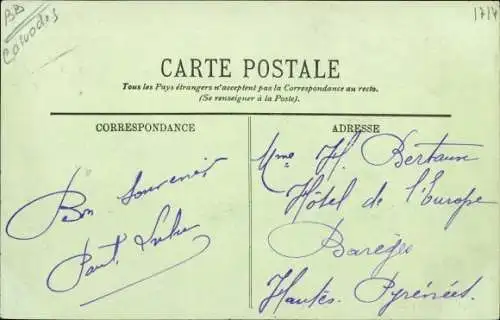 BB
Calvados
1714
CARTE POSTALE
Tous les Pays étrangers n'acceptent pas la Correspondance au recto.
(Se renseigner à la Poste).
CORRESPONDANCE
ADRESSE
Bon Souvenir
Paul
Mme H. Bertaux
Hôtel de l'Europe
Barèges
Hautes. Pyrénées.